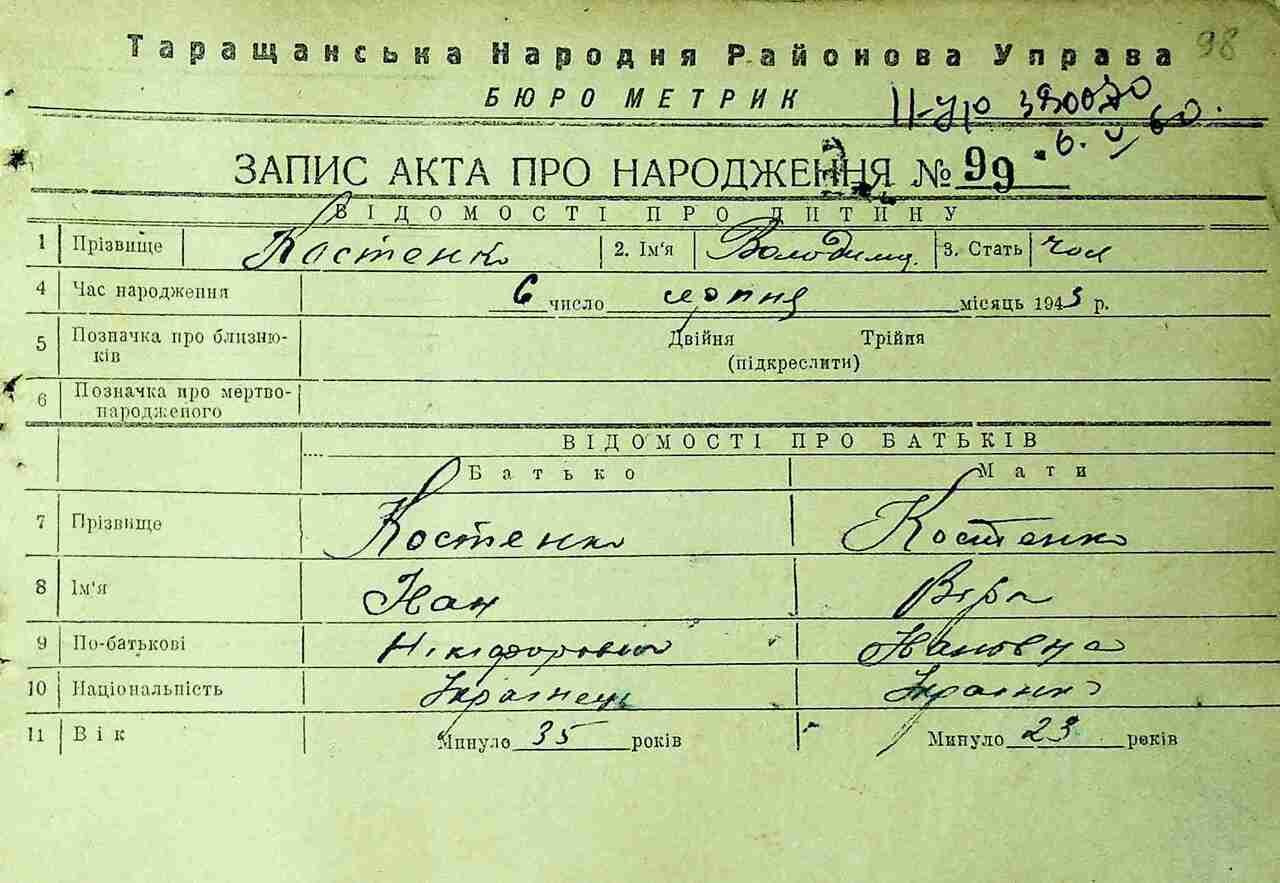 98
Таращанська Народня Районова Управа
БЮРО МЕТРИК
ІІ-УР 390070
6. V 60.
ЗАПИС АКТА ПРО НАРОДЖЕННЯ № 99
ВІДОМОСТІ ПРО ДИТИНУ
1 Прізвище Костенко 2. Ім'я Володимир. 3. Стать чол
4 Час народження 6 число серпня місяць 1943 р.
5 Позначка про близню-
ків
Двійня Трійня
(підкреслити)
6 Позначка про мертво-
народженого
ВІДОМОСТІ ПРО БАТЬКІВ
Батько Мати
7 Прізвище Костенко Костенко
8 Ім'я Іван Віра
9 По-батькові Нікіфорович Івановна
10 Національність Українець Українка
11 Вік Минуло 35 років Минуло 23 років